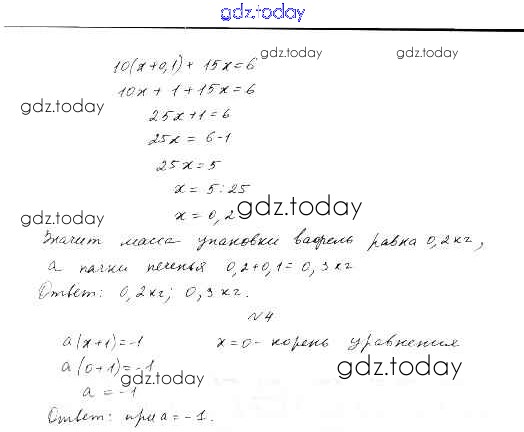 gdz.today
10(x+0,1) + 15x = 6
gdz.today
gdz.today
10x + 1 + 15x = 6
gdz.today
25x + 1 = 6
25x = 6-1
25x = 5
x = 5 : 25
x = 0,2
gdz.today
gdz.today
Значит масса упаковки вафель равна 0,2 кг,
а пачки печенья 0,2+0,1 = 0,3 кг
Ответ: 0,2 кг; 0,3 кг.
№4
a(x+1) = -1 x=0 - корень уравнения
a(0+1) = -1
gdz.today
gdz.today
a = -1
Ответ: при a = -1.